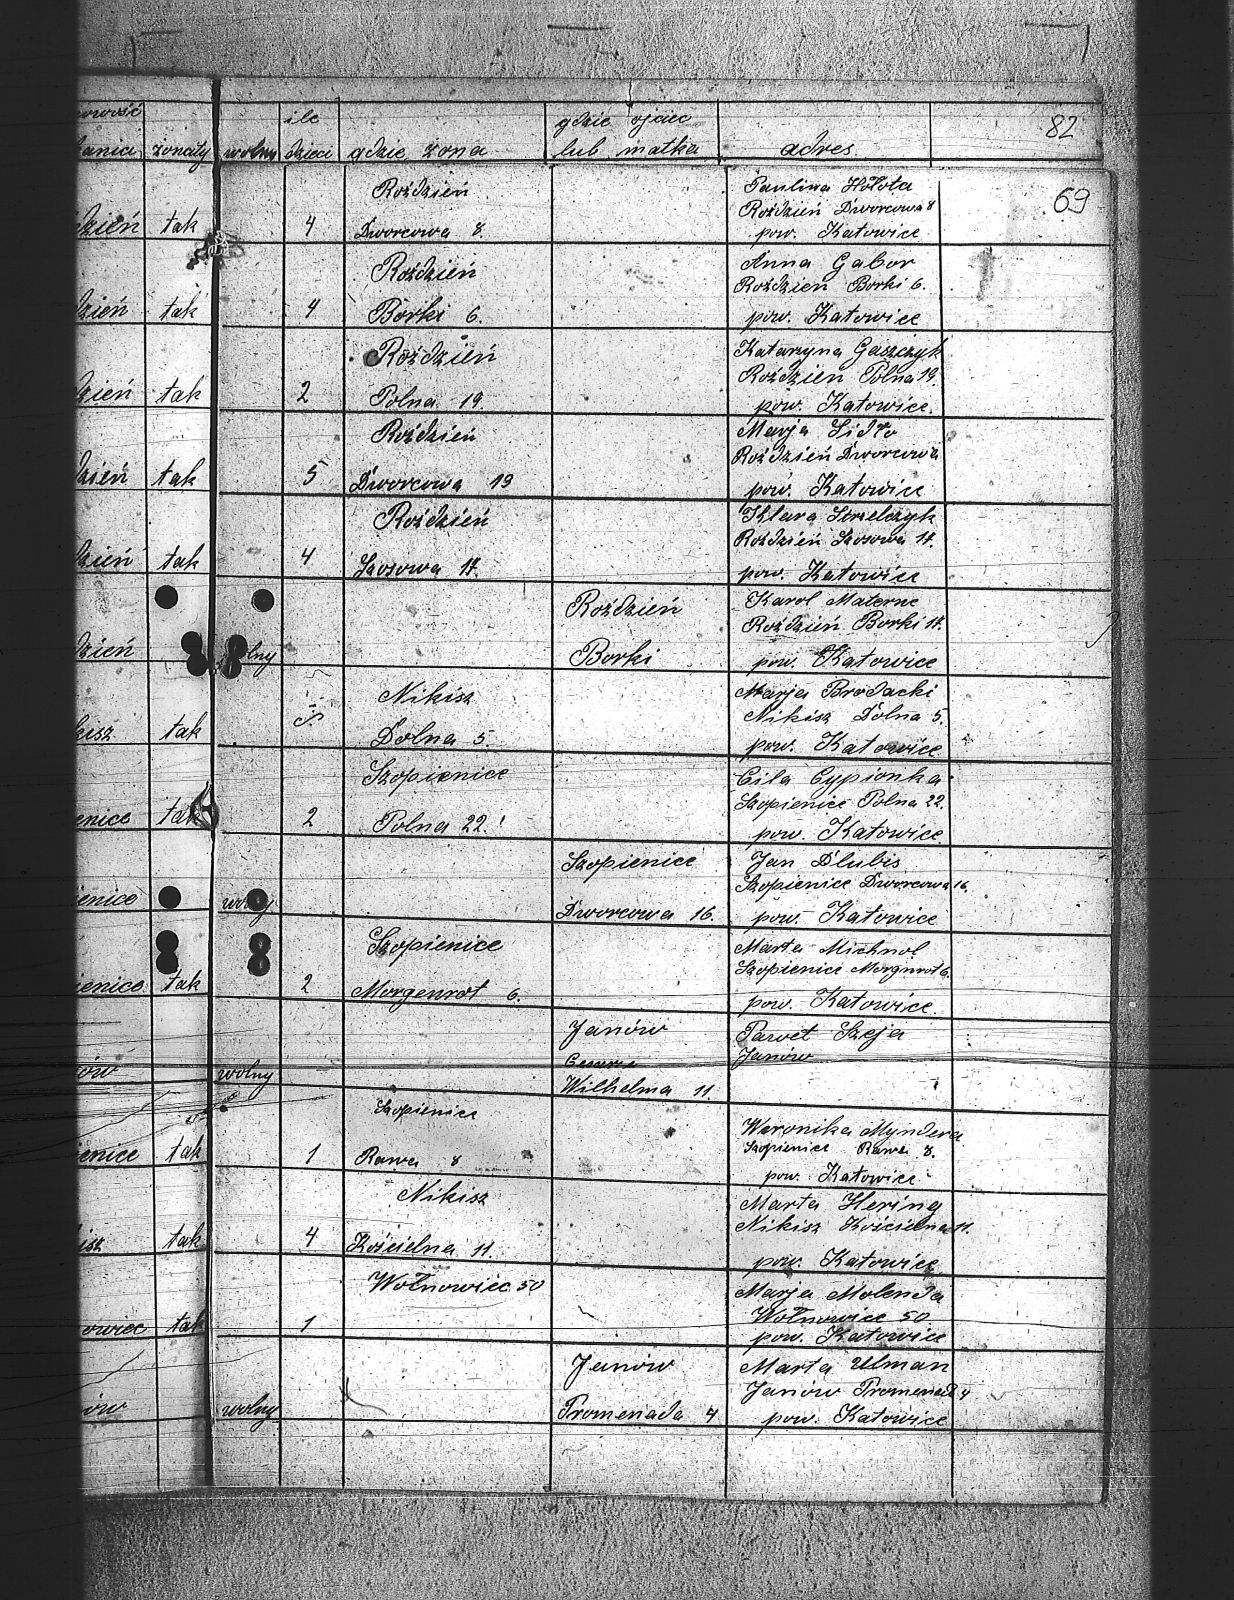 ile gdzie ojciec 82
żonaty wolny dzieci gdzie żona lub matka adres
69
Roździeń Paulina Hołota
Roździeń Dworcowa 8
dzień tak 4 Dworcowa 8. pow. Katowice
Roździeń Anna Gabor
Roździeń Borki 6.
dzień tak 4 Borki 6. pow. Katowice
Roździeń Katarzyna Gaszczyk
Roździen Polna 19.
dzień tak 2 Polna 19. pow. Katowice.
Roździeń Marja
Roździeń Dworcowa
dzień tak 5 Dworcowa 19 pow. Katowice
Roździeń Klara Strzelczyk
Roździeń Szosowa 17.
dzień tak 4 Szosowa 17. pow. Katowice
Roździeń Karol Materne
Roździeń Borki 17.
dzień wolny Borki pow. Katowice
Nikisz Marja Brodacki
Nikisz Dolna 5.
kisz tak Dolna 5. pow. Katowice
Szopienice Cila Cypionka
Szopienice Polna 22.
enice tak 2 Polna 22. pow. Katowice.
Szopienice Jan Dlubis
Szopienice Dworcowa 16.
ienice wolny Dworcowa 16. pow. Katowice
Szopienice Marta Michnol
Szopienice Morgenrot 6.
ienice tak 2 Morgenrot 6. pow. Katowice.
Janów Paweł Szeja
Janów
ów wolny
Wilhelma 11.
Szopienice Weronika Myndera
Szopienice Rawa 8.
ienice tak 1 Rawa 8 pow. Katowice
Nikisz Marta Hering
Nikisz Kościelna 11.
isz tak 4 Kościelna 11. pow. Katowice
Wołnowiec 50 Marja Molenda
Wołnowice 50
owiec tak 1 pow. Katowice
Janów Marta Ulman
Janów Promenada 4
ów wolny Promenada 4 pow. Katowice